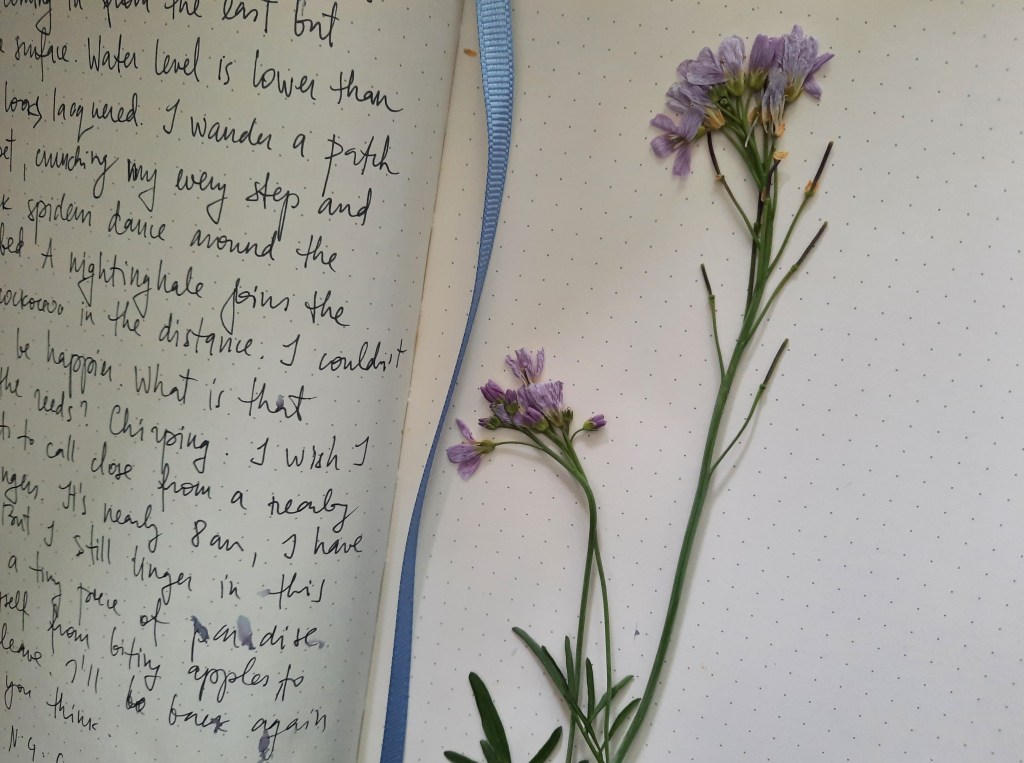 coming in from the east but
surface. Water level is lower than
looks lacquered. I wander a patch
crunching my every step and
spiders dance around the
A nightinghale joins the
in the distance. I couldn't
be happier. What is that
the reeds? Chirping. I wish I
to call close from a nearby
It's nearly 8 am, I have
But I still linger in this
a tiny piece of paradise.
from biting apples to
leave I'll be back again
you think.
N.G.